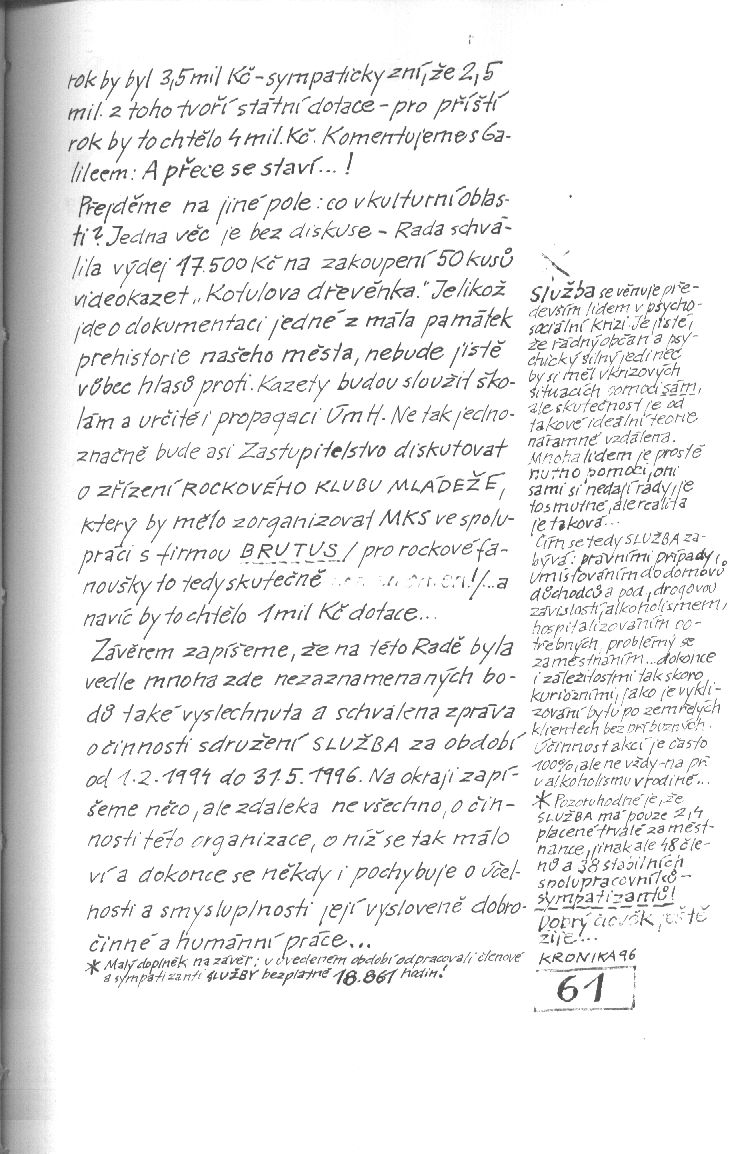 rok by byl 3,5 mil Kč - sympaticky zní, že 2,5
mil. z toho tvoří státní dotace - pro příští
rok by to chtělo 4 mil. Kč. Komentujeme s Ga-
lileem: A přece se staví...!
Přejděme na jiné pole: co v kulturní oblas-
ti? Jedna věc je bez diskuse - Rada schvá-
lila výdej 17.500 Kč na zakoupení 50 kusů
videokazet „Kotulova dřevěnka." Jelikož
jde o dokumentaci jedné z mála památek
prehistorie našeho města, nebude jistě
vůbec hlasů proti. Kazety budou sloužit ško-
lám a určitě i propagaci ÚmH. Ne tak jedno-
značně bude asi Zastupitelstvo diskutovat
o zřízení ROCKOVÉHO KLUBU MLÁDEŽE,
který by mělo zorganizovat MKS ve spolu-
práci s firmou BRUTUS / pro rockové fa-
noušky to tedy skutečně !/...a
navíc by to chtělo 1 mil Kč dotace...
Závěrem zapíšeme, že na této Radě byla
vedle mnoha zde nezaznamenaných bo-
dů také vyslechnuta a schválena zpráva
o činnosti sdružení SLUŽBA za období
od 1.2.1994 do 31.5.1996. Na okraji zapí-
šeme něco, ale zdaleka ne všechno, o čin-
nosti této organizace, o níž se tak málo
ví a dokonce se někdy i pochybuje o účel-
nosti a smysluplnosti její vysloveně dobro-
činné a humánní práce...
* Malý doplněk na závěr: v uvedeném období odpracovali členové
a sympatizanti SLUŽBY bezplatně 18.861 hodin!
Služba se věnuje pře-
devším lidem v psycho-
sociální krizi. Je jisté,
že řádný občan a psy-
chicky silný jedinec
by si měl v krizových
situacích pomoci sám,
ale skutečnost je od
takové ideální teorie
náramně vzdálena.
Mnoha lidem je prostě
nutno pomoci, oni
sami si nedají rady, je
to smutné, ale realita
je taková...
Čím se tedy SLUŽBA za-
bývá: právními případy,
umisťováním do domovů
důchodců a pod, drogovou
závislostí, alkoholismem,
hospitalizováním po-
třebných, problémy se
zaměstnáním... dokonce
i záležitostmi tak skoro
kuriózními, jako je vykli-
zování bytů po zemřelých
klientech bez příbuzných.
Účinnost akcí je často
100%, ale ne vždy - na př
u alkoholismu v rodině...
* Pozoruhodné je, že
SLUŽBA má pouze 2,4
placené trvalé zaměst-
nance, jinak ale 48 čle-
nů a 38 stabilních
spolupracovníků -
sympatizantů!
Dobrý člověk ještě
žije...
KRONIKA 96
61